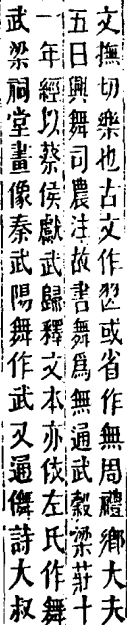 文撫切樂也古文作𦏶或省作無周禮鄉大夫
五曰興舞司農注故書舞爲無通武穀梁莊十
一年經以蔡侯獻武歸釋文本亦依左氏作舞
武梁祠堂畫像秦武陽舞作武又通儛詩大叔